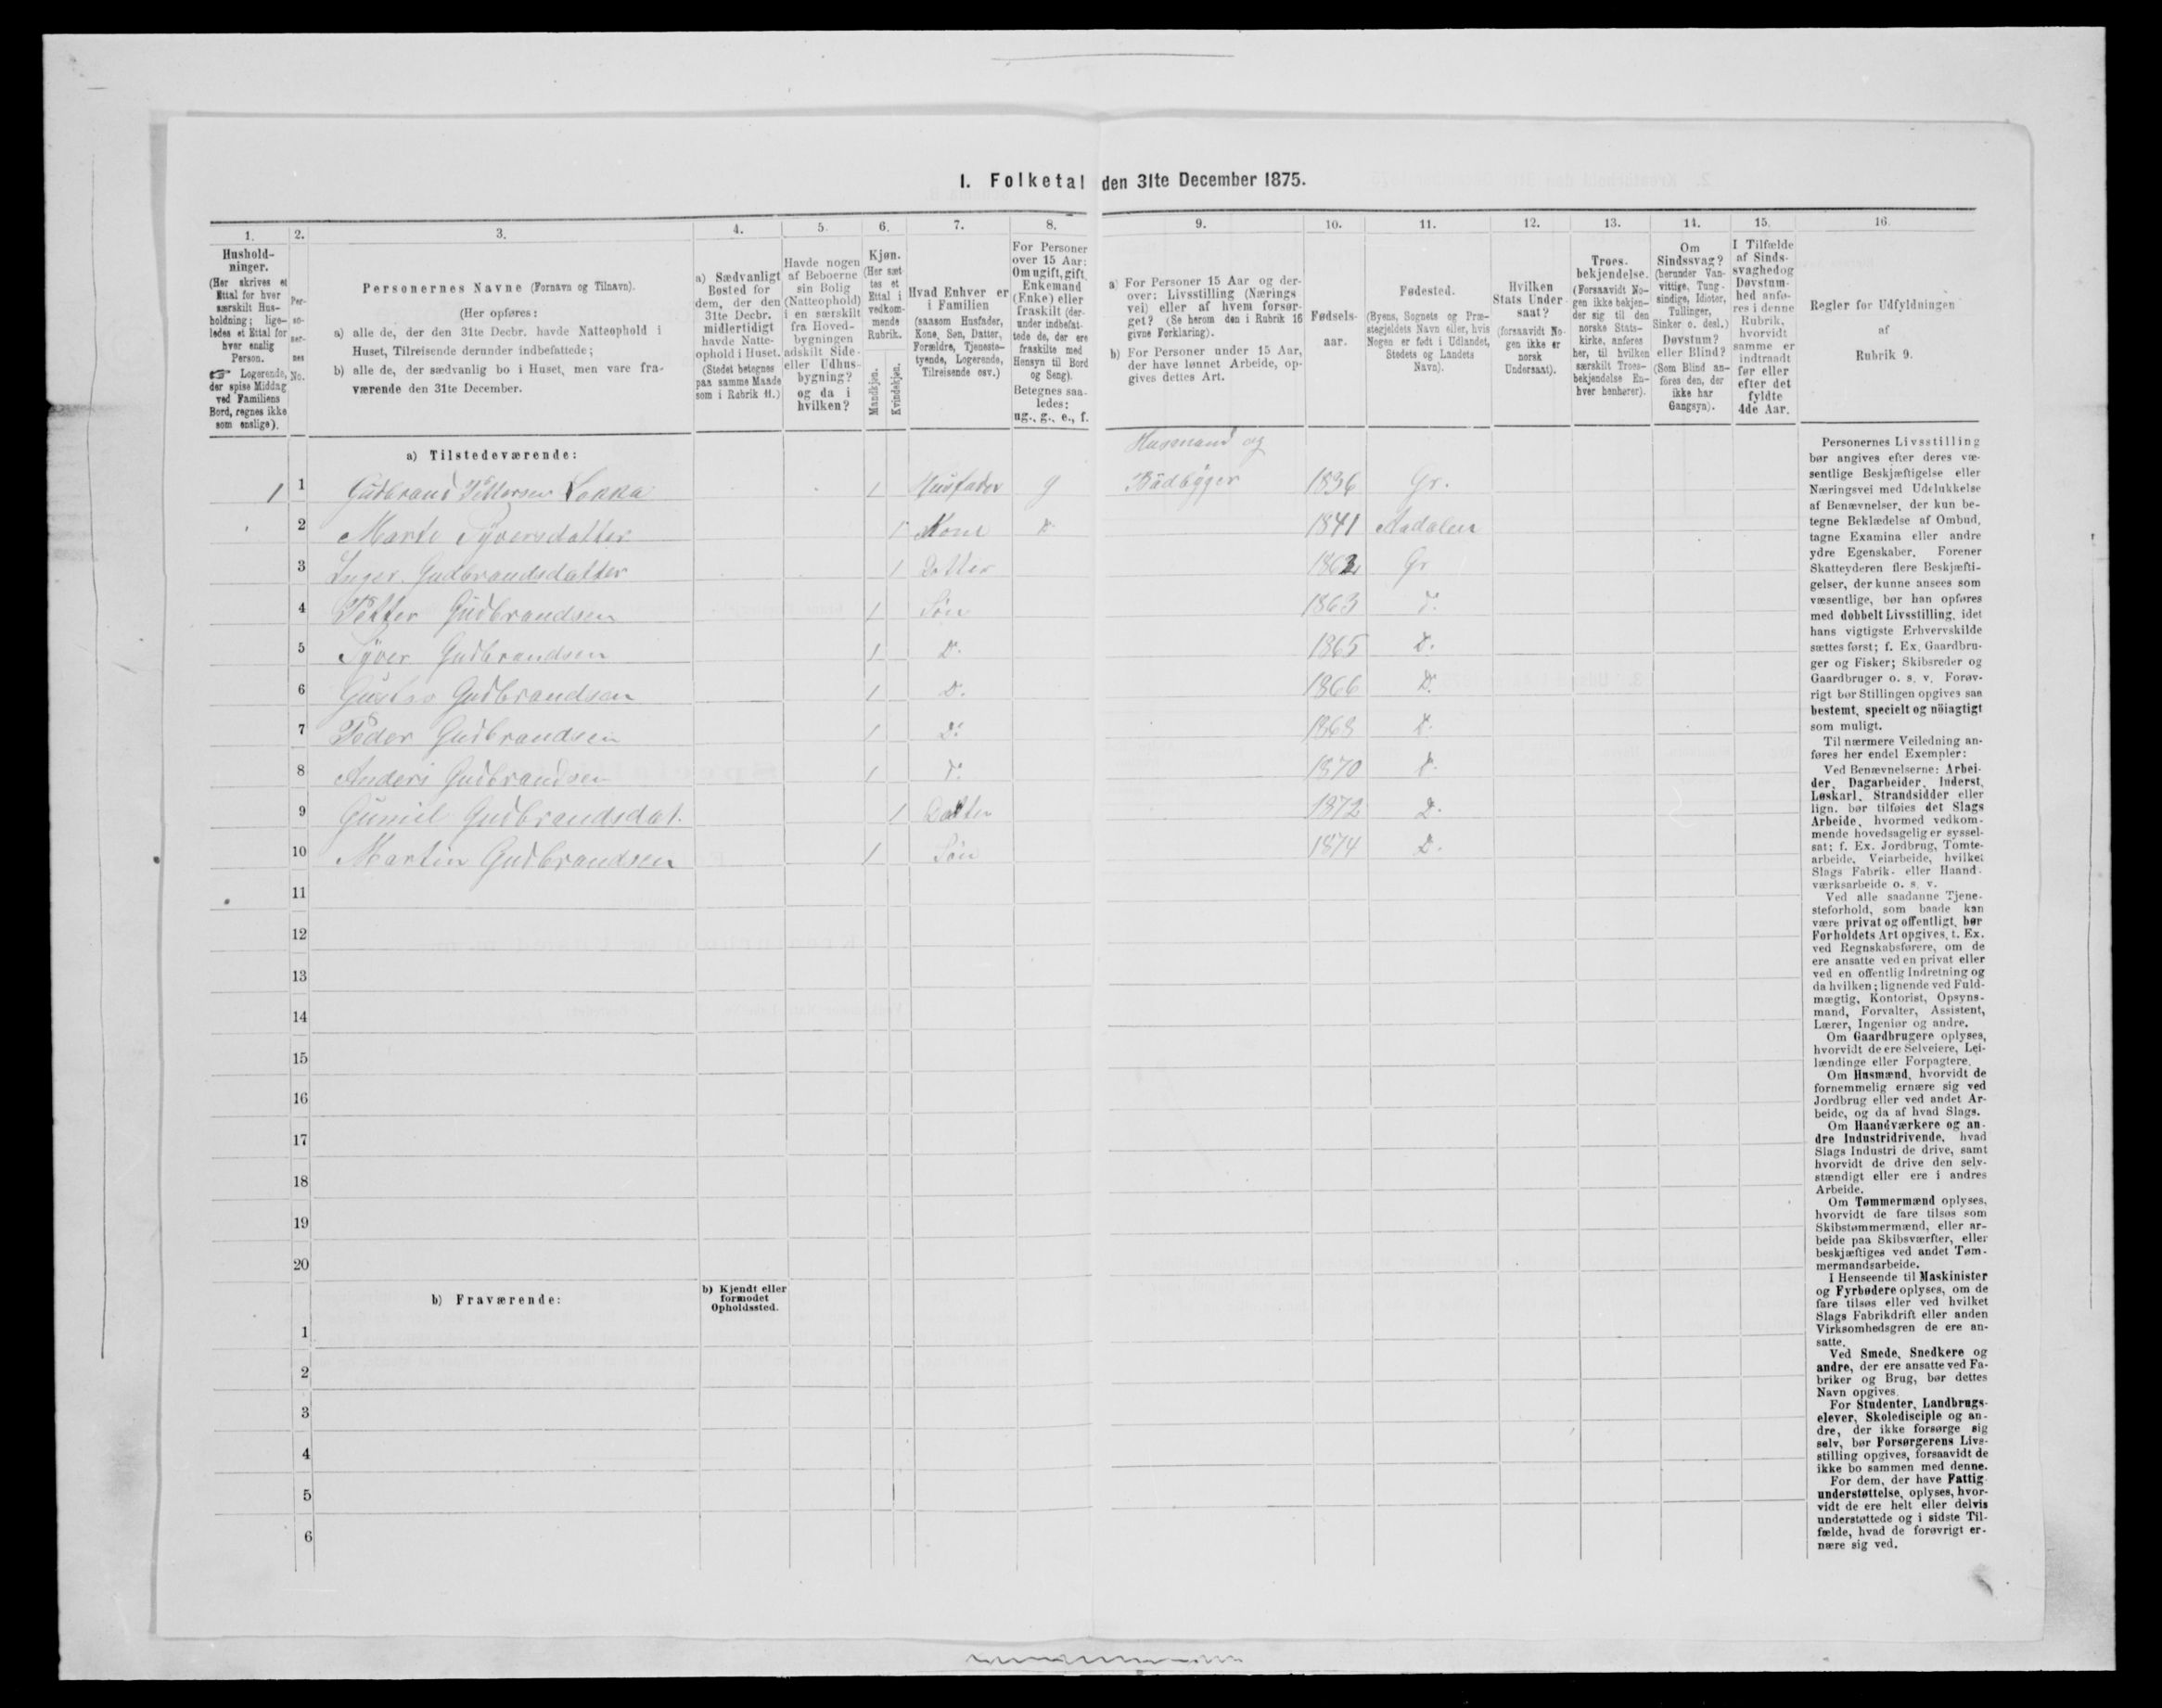 1. Folketal den 31te December 1875.
1.
2.
3.
4.
5.
6.
7.
8.
9.
10.
11.
12.
13.
14.
15.
16.
Hushold-
ninger.
(Her skrives et
Ettal for hver
særskilt Hus-
holdning; lige-
ledes et Ettal for
hver enslig
Person.
☞ Logerende,
der spise Middag
ved Familiens
Bord, regnes ikke
som enslige).
Per-
so-
ner-
nes
No.
Personernes Navne (Fornavn og Tilnavn).
(Her opføres:
a) alle de, der den 31te Decbr. havde Natteophold i
Huset, Tilreisende derunder indbefattede;
b) alle de, der sædvanlig bo i Huset, men vare fra-
værende den 31te December.
a) Sædvanligt
Bosted for
dem, der den
31te Decbr.
midlertidigt
havde Natte-
ophold i Huset.
(Stedet betegnes
paa samme Maade
som i Rubrik 11.)
Havde nogen
af Beboerne
sin Bolig
(Natteophold)
i en særskilt
fra Hoved-
bygningen
adskilt Side-
eller Udhus-
bygning?
og da i
hvilken?
Kjøn.
(Her sæt-
tes et
Ettal i
vedkom-
mende
Rubrik.
Mandkjøn.
Kvindekjøn.
Hvad Enhver er
i Familien
(saasom Husfader,
Kone, Søn, Datter,
Forældre, Tjeneste-
tyende, Logerende,
Tilreisende osv.)
For Personer
over 15 Aar:
Om ugift, gift,
Enkemand
(Enke) eller
fraskilt (der-
under indbefat-
tede de, der ere
fraskilte med
Hensyn til Bord
og Seng).
Betegnes saa-
ledes:
ug., g., e., f.
a) For Personer 15 Aar og der-
over: Livsstilling (Nærings
vei) eller af hvem forsør-
get? (Se herom den i Rubrik 16
givne Forklaring).
b) For Personer under 15 Aar,
der have lønnet Arbeide, op-
gives dettes Art.
Fødsels-
aar.
Fødested.
(Byens, Sognets og Præ-
stegjeldets Navn eller, hvis
Nogen er født i Udlandet,
Stedets og Landets
Navn).
Hvilken
Stats Under-
saat?
(forsaavidt No-
gen ikke er
norsk
Undersaat).
Troes-
bekjendelse.
(Forsaavidt No-
gen ikke bekjen-
der sig til den
norske Stats-
kirke, anføres
her, til hvilken
særskilt Troes-
bekjendelse En-
hver henhører).
Om
Sindssvag?
(herunder Van-
vittige, Tung-
sindige, Idioter,
Tullinger,
Sinker o. desl.)
Døvstum?
eller Blind?
(Som Blind an-
føres den, der
ikke har
Gangsyn).
I Tilfælde
af Sinds-
svaghed og
Døvstum-
hed anfø-
res i denne
Rubrik,
hvorvidt
samme er
indtraadt
før eller
efter det
fyldte
4de Aar.
Regler for Udfyldningen
af
Rubrik 9.
a) Tilstedeværende:
Husmand og
1 1 Gudbrand Pettersen Løkka 1 Husfader g Bødbygger 1836 Gr.
2 Marte Syversdatter 1 Kone 1841 Aadalen
3 Inger Gudbrandsdatter 1 Datter Gr
4 Petter Gudbrandsen 1 Søn 1863
5 Syver Gudbrandsen 1 D. 1865 D.
6 Gustav Gudbrandsen 1 D. 1866 D.
7 Peder Gudbrandsen 1 D. 1868 D.
8 Anders Gudbrandsen 1 1870
9 Gunild Gudbrandsdat. 1 Datter 1872 D.
10 Martin Gudbrandsen 1 Søn 1874 D.
11
12
13
14
15
16
17
18
19
20
b) Fraværende:
b) Kjendt eller
formodet
Opholdssted.
1
2
3
4
5
6
Personernes Livsstilling
bør angives efter deres væ-
sentlige Beskjæftigelse eller
Næringsvei med Udelukkelse
af Benævnelser, der kun be-
tegne Beklædelse af Ombud,
tagne Examina eller andre
ydre Egenskaber. Forener
Skatteyderen flere Beskjæfti-
gelser, der kunne ansees som
væsentlige, bør han opføres
med dobbelt Livsstilling, idet
hans vigtigste Erhvervskilde
sættes først; f. Ex. Gaardbru-
ger og Fisker; Skibsreder og
Gaardbruger o. s. v. Forøv-
rigt bør Stillingen opgives saa
bestemt, specielt og nöiagtigt
som muligt.
Til nærmere Veiledning an-
føres her endel Exempler:
Ved Benævnelserne: Arbei-
der, Dagarbeider, Inderst,
Løskarl, Strandsidder eller
lign. bør tilføies det Slags
Arbeide, hvormed vedkom-
mende hovedsagelig er syssel-
sat; f. Ex. Jordbrug, Tomte-
arbeide, Veiarbeide, hvilket
Slags Fabrik- eller Haand-
værksarbeide o. s. v.
Ved alle saadanne Tjene-
steforhold, som baade kan
være privat og offentligt, bør
Forholdets Art opgives, t. Ex.
ved Regnskabsførere, om de
ere ansatte ved en privat eller
ved en offentlig Indretning og
da hvilken; lignende ved Fuld-
mægtig, Kontorist, Opsyns-
mand, Forvalter, Assistent,
Lærer, Ingeniør og andre.
Om Gaardbrugere oplyses,
hvorvidt de ere Selveiere, Lei-
lændinge eller Forpagtere.
Om Husmænd, hvorvidt de
fornemmelig ernære sig ved
Jordbrug eller ved andet Ar-
beide, og da af hvad Slags.
Om Haandværkere og an-
dre Industridrivende, hvad
Slags Industri de drive, samt
hvorvidt de drive den selv-
stændigt eller ere i andres
Arbeide.
Om Tømmermænd oplyses,
hvorvidt de fare tilsøs som
Skibstømmermænd, eller ar-
beide paa Skibsværfter, eller
beskjæftiges ved andet Tøm-
mermandsarbeide.
I Henseende til Maskinister
og Fyrbødere oplyses, om de
fare tilsøs eller ved hvilket
Slags Fabrikdrift eller anden
Virksomhedsgren de ere an-
satte.
Ved Smede, Snedkere og
andre, der ere ansatte ved Fa-
briker og Brug, bør dettes
Navn opgives.
For Studenter, Landbrugs-
elever, Skoledisciple og an-
dre, der ikke forsørge sig
selv, bør Forsørgerens Livs-
stilling opgives, forsaavidt de
ikke bo sammen med denne.
For dem, der have Fattig-
understøttelse, oplyses, hvor-
vidt de ere helt eller delvis
understøttede og i sidste Til-
fælde, hvad de forøvrigt er-
nære sig ved.